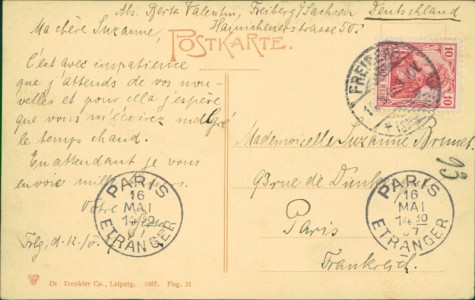 Abs. Berta Valentin, Freiberg/Sachsen Deutschland
Hainichenerstrasse 50.
POSTKARTE.
Ma chère Suzanne,
C'est avec impatience
que j'attends de vos nou-
velles et pour cela j'espère
que vous m'écrirez malgré
le temps chaud.
En attendant je vous
envoie mille
Votre
Frbg, d. 12./V.
Mademoiselle Suzanne Brunet
6 rue de Dunkerque
Paris
Frankreich.
13
10 10
FREIBERG
PARIS
16
MAI
14 30
07
ETRANGER
PARIS
16
MAI
14 30
07
ETRANGER
Dr. Trenkler Co., Leipzig. 1907. Fbg. 31